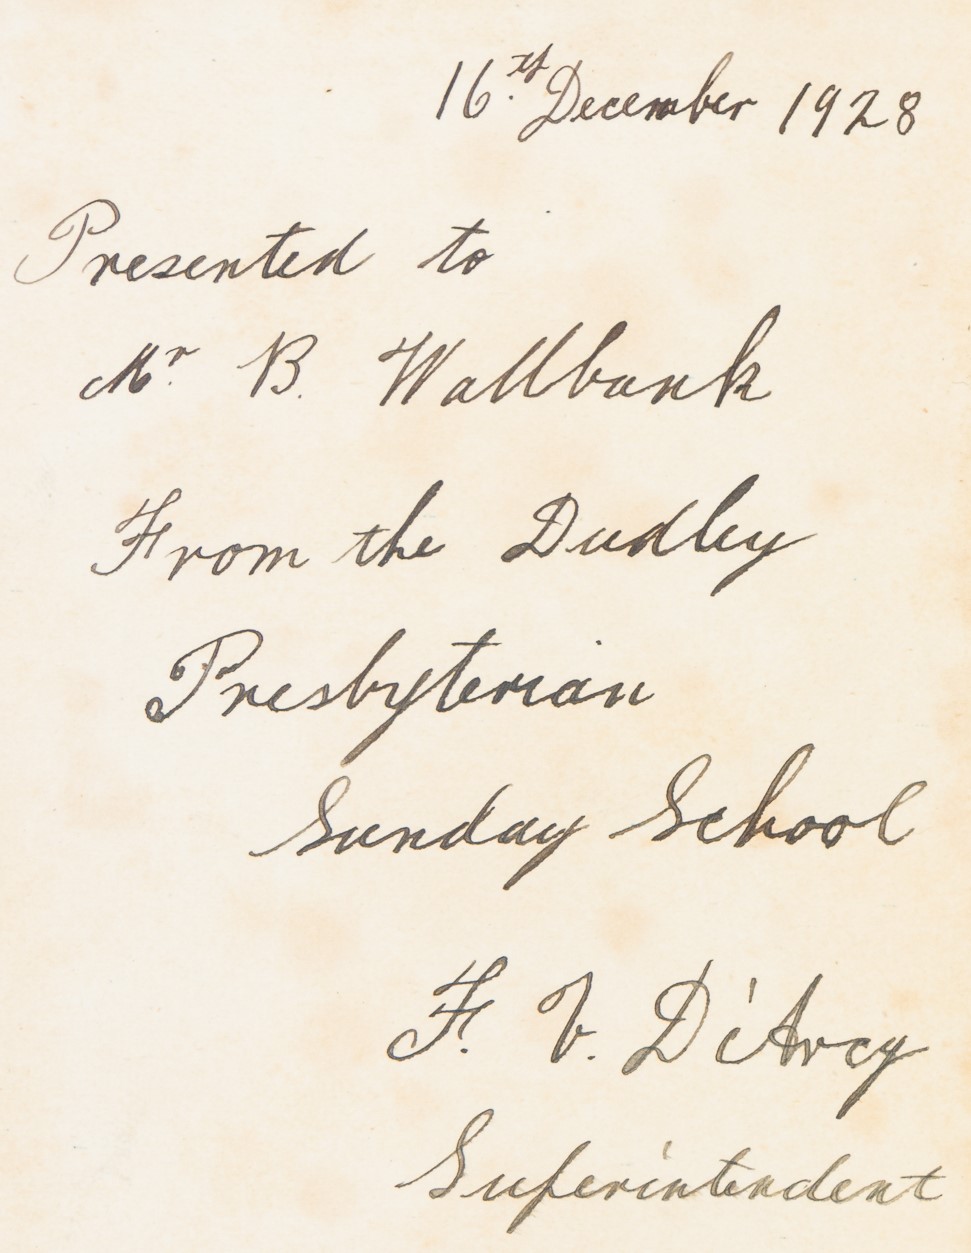 16th. December 1928
Presented to
Mr. B. Wallbank
From the Dudley
Presbyterian
Sunday School
F. V. D'Arcy
Superintendent